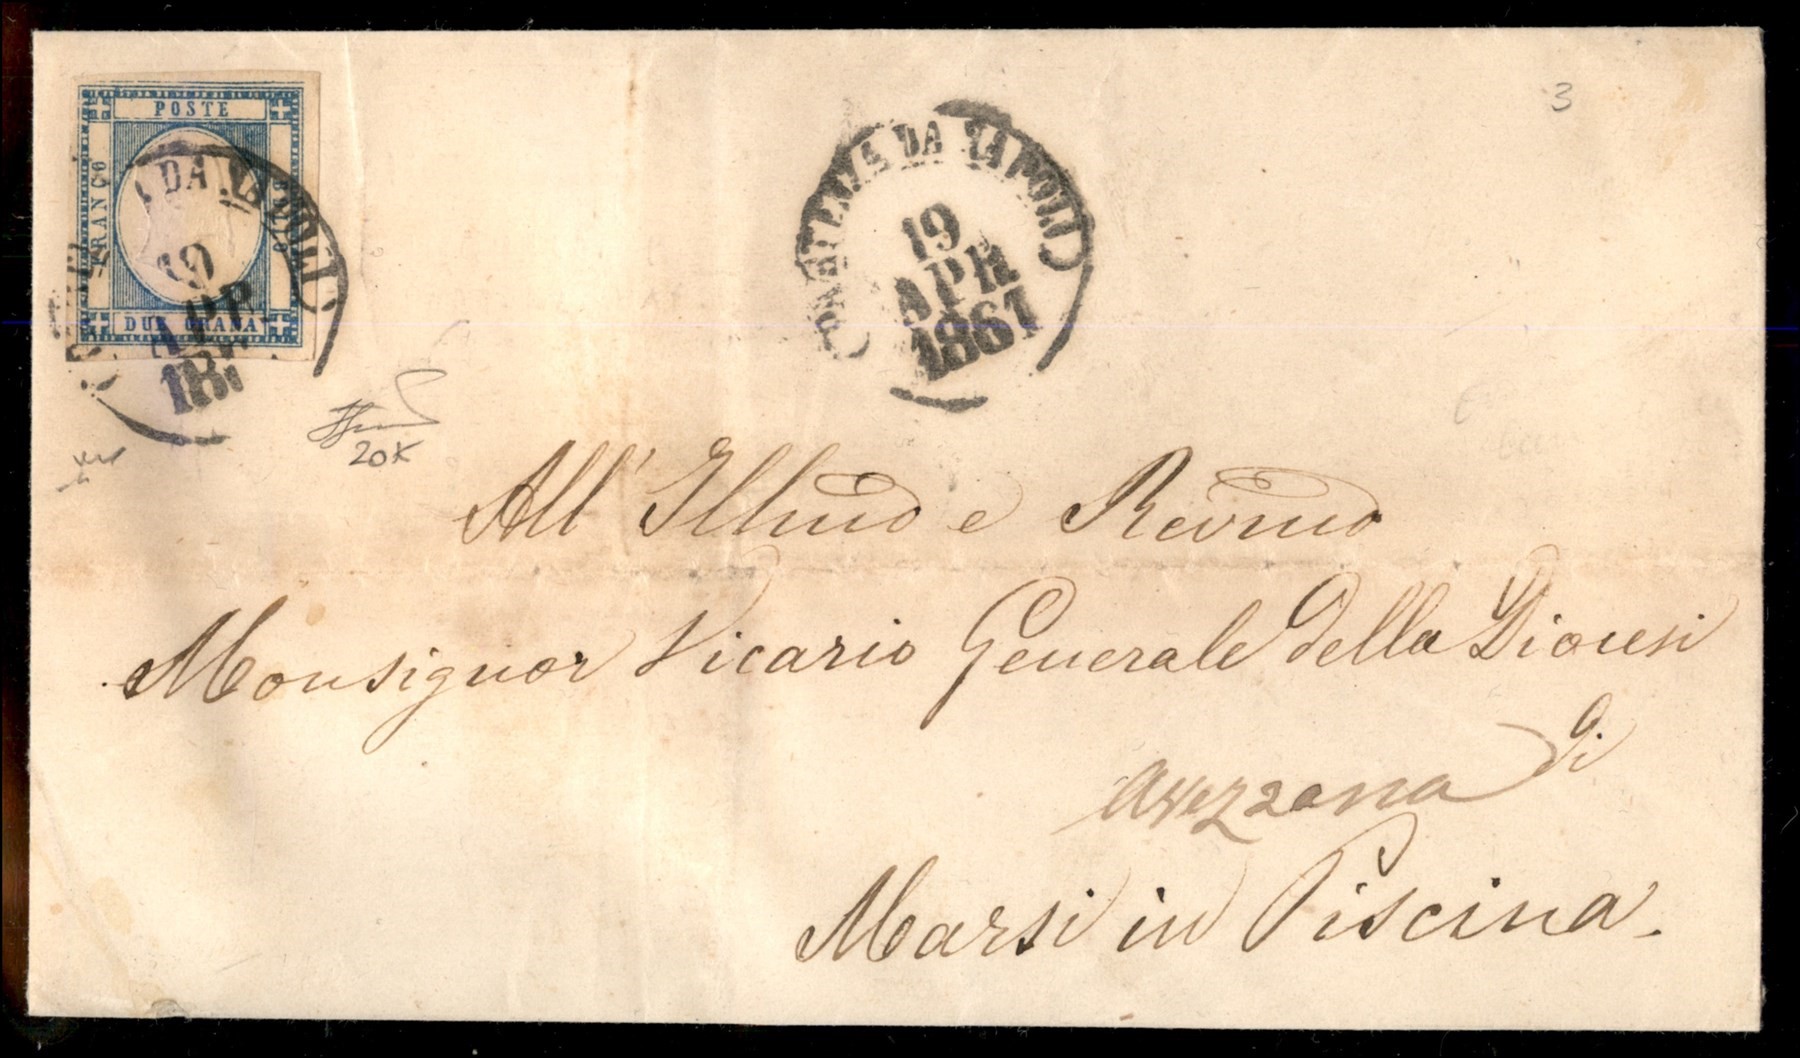 POSTE
FRANCO
DUE GRANA
DA NAPOLI
19
APR
18
3
PARTENZA DA NAPOLI
19
APR
1861
20K
All' Illmo e Revmo
Monsignor Vicario Generale della Diocesi
di
Avezzana
Marsi in Piscina.